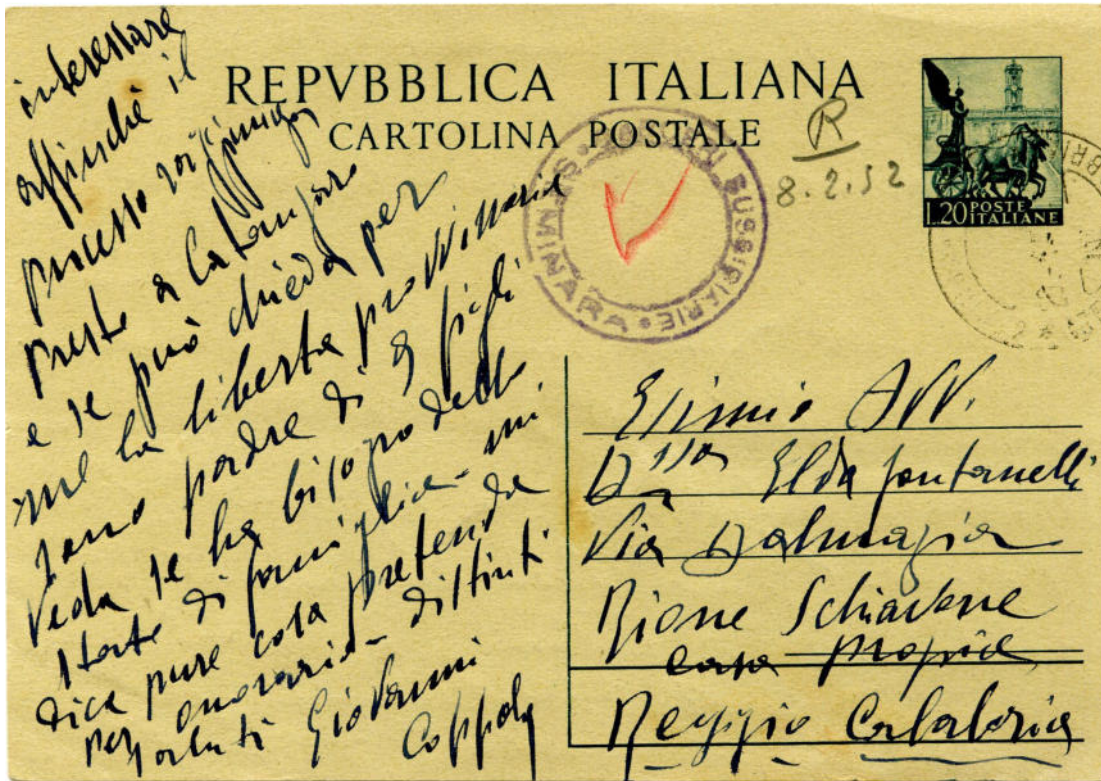 REPVBBLICA ITALIANA
CARTOLINA POSTALE
L.20 POSTE
ITALIANE
R
8.2.52
SUSSIDIARIE
MINARA
interessare
affinché il
processo
presto a Catanzaro
e se può chieda per
me la libertà provvisoria
sono padre di 9 figli
Veda se ha bisogno dello
stato di famiglia - mi
dica pure cosa pretende
per onorario - distinti
saluti Giovanni
Coppola
Esimio Avv.
D.ssa Elda Fontanelli
Via Dalmazia
Rione Schiavone
casa propria
Reggio Calabria